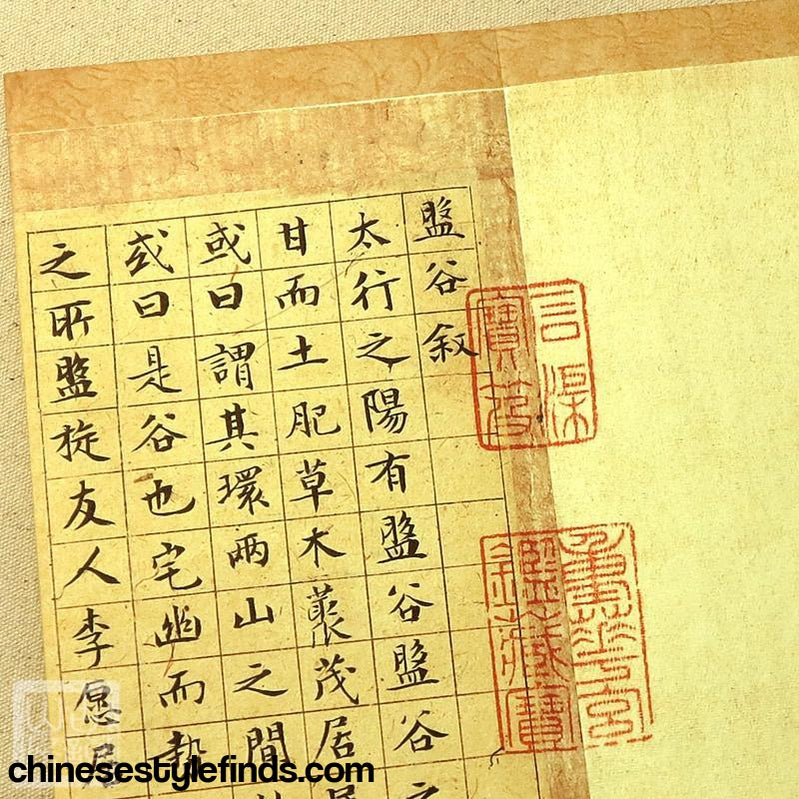 盤谷叙
太行之陽有盤谷盤谷之
甘而土肥草木藂茂居
或曰謂其環兩山之間
或曰是谷也宅幽而勢
之所盤旋友人李愿居
石渠寶笈
重華宮鑑藏寶
chinesestylefinds.com